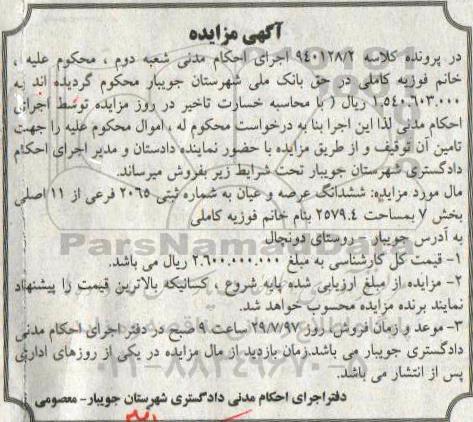 آگهی مزایده
در پرونده کلاسه ۹۴۰۱۲۸/۲ اجرای احکام مدنی شعبه دوم ، محکوم علیه ،
خانم فوزیه کاملی در حق بانک ملی شهرستان جویبار محکوم گردیده اند به
۱.۵۴۰.۶۰۳.۰۰۰ ریال ( با محاسبه خسارت تاخیر در روز مزایده توسط اجرای
احکام مدنی لذا این اجرا بنا به درخواست محکوم له ، اموال محکوم علیه را جهت
تامین آن توقیف و از طریق مزایده با حضور نماینده دادستان و مدیر اجرای احکام
دادگستری شهرستان جویبار تحت شرایط زیر بفروش میرساند.
مال مورد مزایده: ششدانگ عرصه و عیان به شماره ثبتی ۲۰۶۵ فرعی از ۱۱ اصلی
بخش ۷ بمساحت ۲۵۷۹.٤ بنام خانم فوزیه کاملی
به آدرس جویبار – روستای دونچال
ParsNamadData
۱- قیمت کل کارشناسی به مبلغ ۲.۶۰۰.۰۰۰.۰۰۰ ریال می باشد.
۲- مزایده از مبلغ ارزیابی شده پایه شروع ، کسانیکه بالاترین قیمت را پیشنهاد
نمایند برنده مزایده محسوب خواهد شد.
۳- موعد و زمان فروش روز ۲۹/۷/۹۷ ساعت ۹ صبح در دفتر اجرای احکام مدنی
دادگستری جویبار می باشد.زمان بازدید از مال مزایده در یکی از روزهای اداری
پس از انتشار می باشد.
دفتراجرای احکام مدنی دادگستری شهرستان جویبار- معصومی